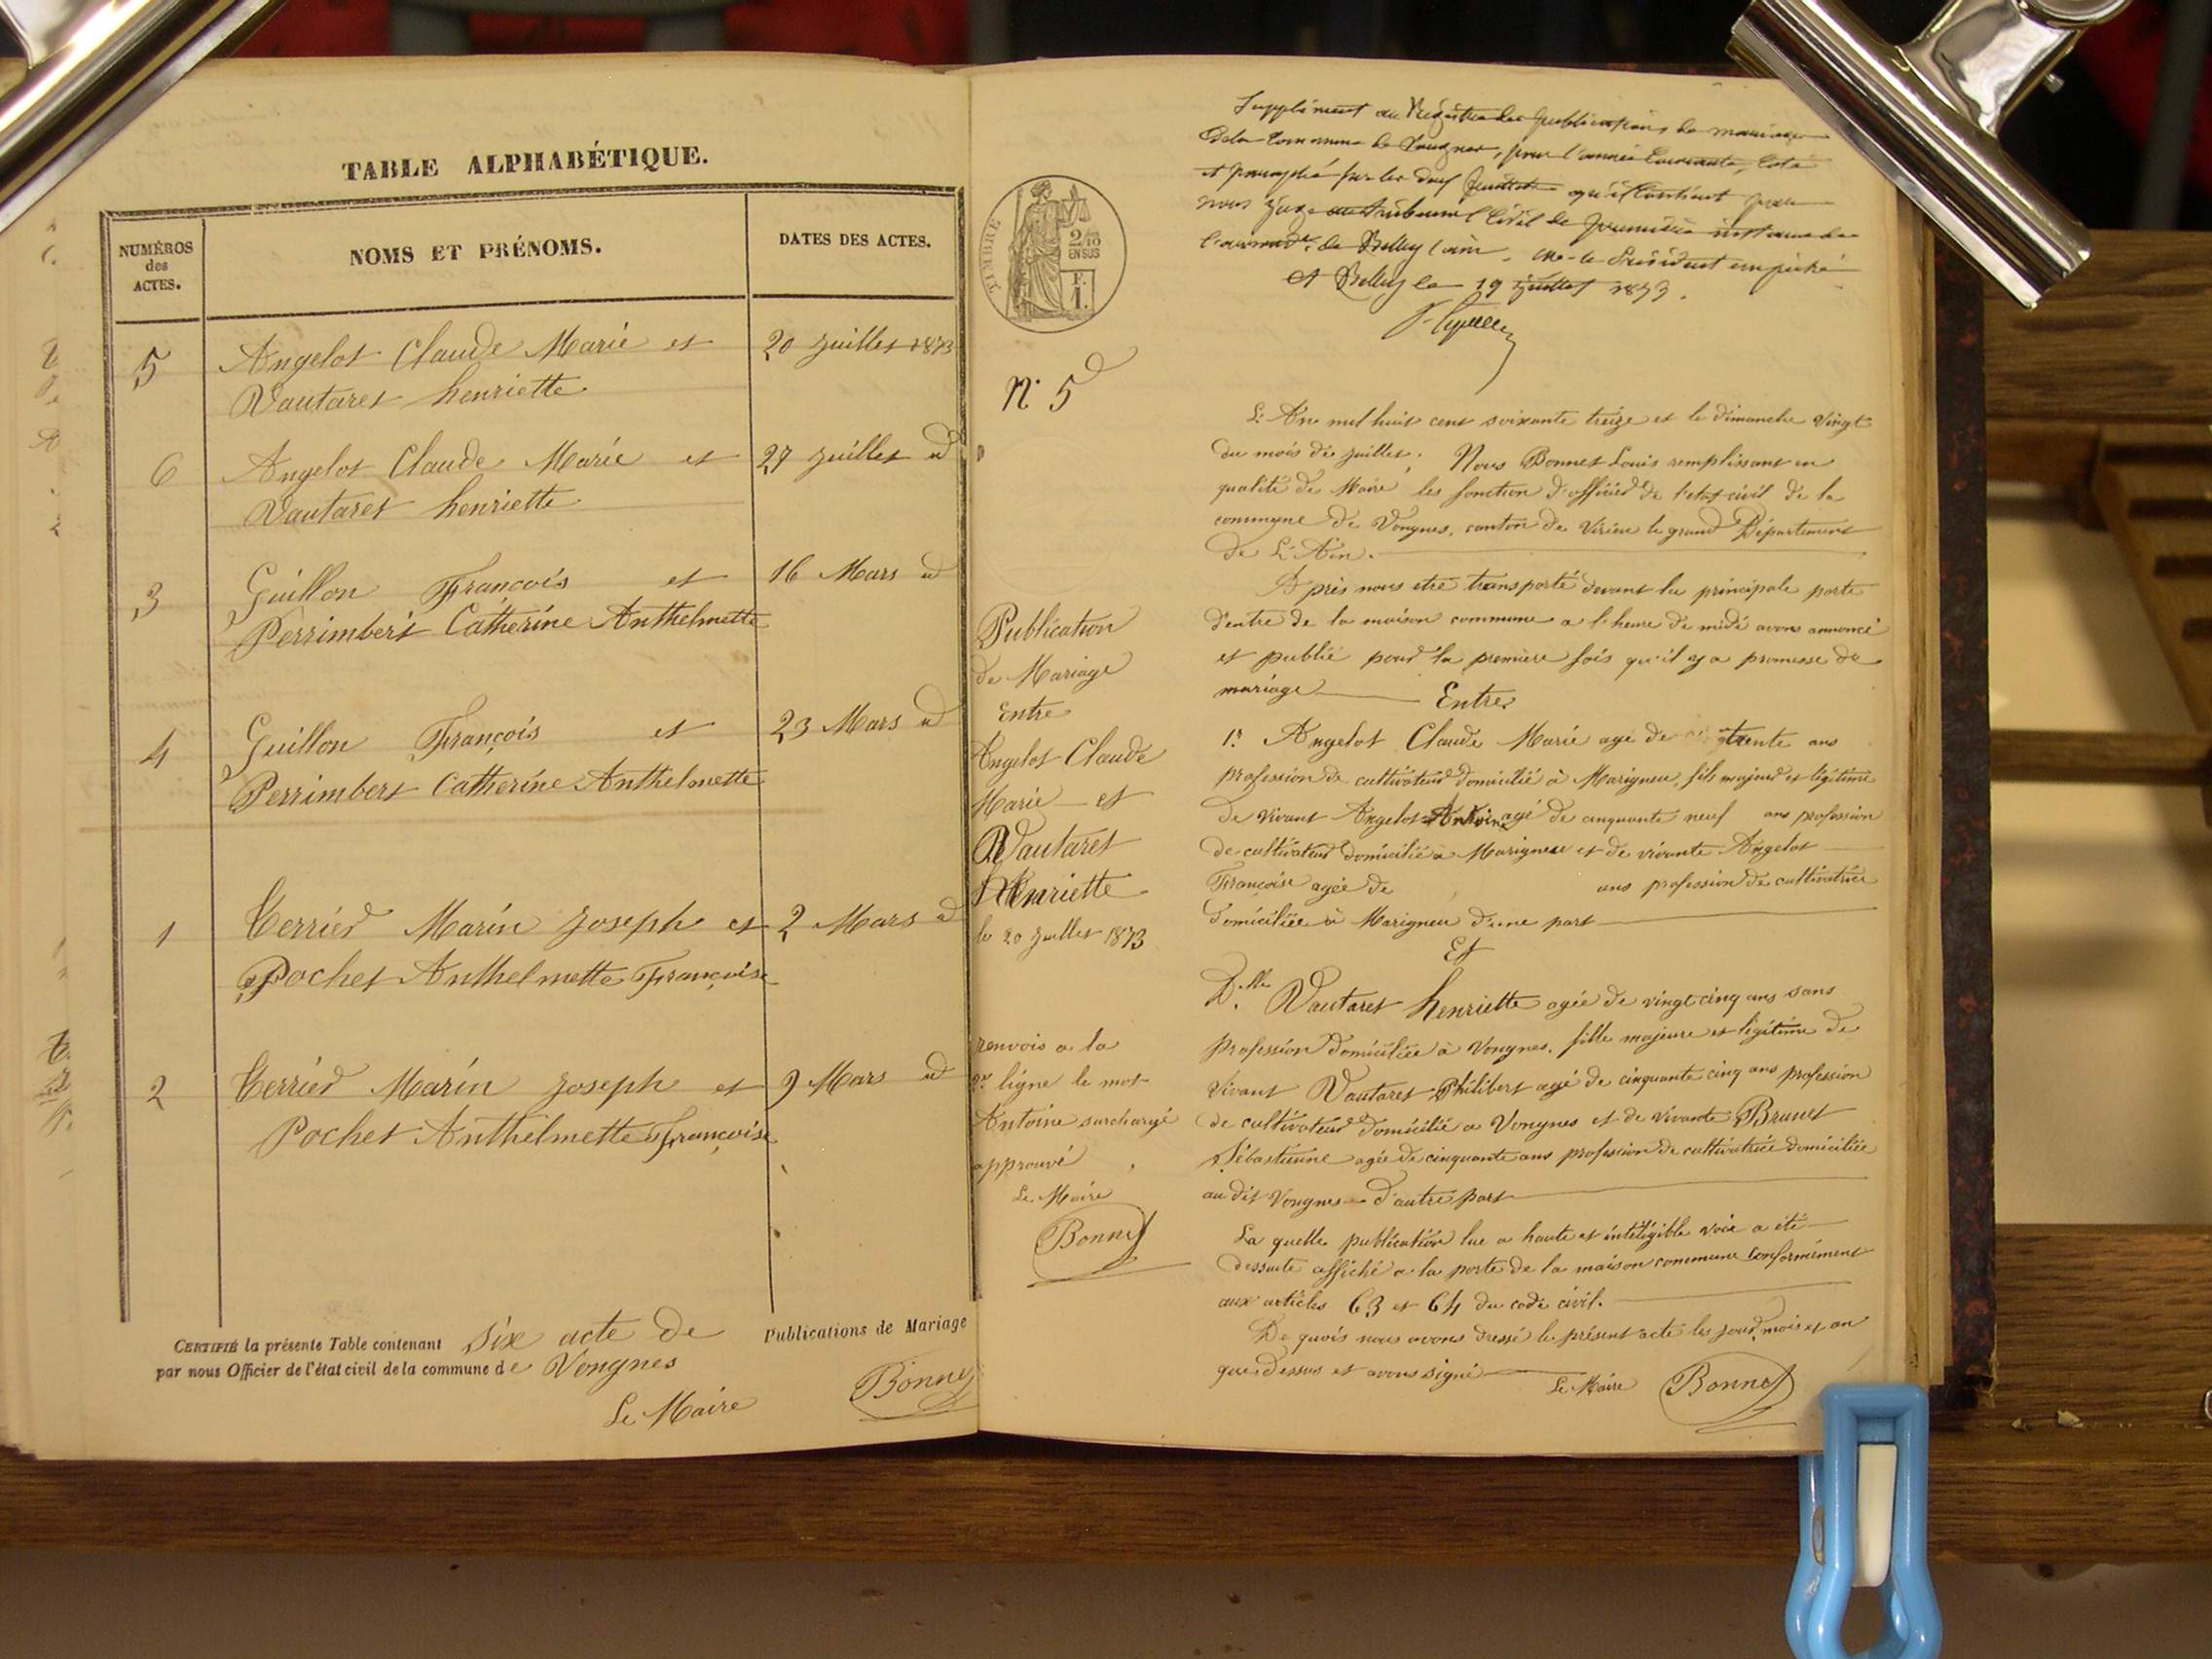 TABLE ALPHABÉTIQUE.
NUMÉROS
des
ACTES.
NOMS ET PRÉNOMS.
DATES DES ACTES.
5 Angelot Claude Marie et 20 Juillet 1873
Vautaret henriette
6 Angelot Claude Marie et 27 Juillet d
Vautaret henriette
3 Guillon François et 16 Mars d
Perrimbert Catherine Anthelmette
4 Guillon François et 23 Mars d
Perrimbert Catherine Anthelmette
1 Terrier Marin Joseph et 2 Mars d
Pochet Anthelmette Françoise
2 Terrier Marin Joseph et 9 Mars d
Pochet Anthelmette Françoise
CERTIFIÉ la présente Table contenant six acte de Publications de Mariage
par nous Officier de l'état civil de la commune de Vongnes
Le Maire Bonnet
Supplément au Registre des publications de mariage
de la Commune de Vongnes, pour l'année courante, coté
et paraphé sur les deux feuillets qu'il contient par
nous Juge au tribunal Civil de première instance de
l'arrond.t de Belley (ain, Mr le Président empêché
et Belley le 19 Juillet 1873.
TIMBRE
2/10
EN SUS
F.
1.
N° 5
L'An mil huit cent soixante treize et le dimanche vingt
du mois de juillet; Nous Bonnet Louis remplissant en
qualité de Maire les fonction d'officier de l'etat civil de la
commune de Vongnes, canton de Virieu le grand Département
de L'Ain.
Après nous etre transporté devant la principale porte
d'entre de la maison commune a l'heure de midi avons annoncé
et publié pour la première fois qu'il y a promesse de
mariage Entre
1° Angelot Claude Marie agé de trente ans
profession de cultivateur domicilié à Marigneu, fils majeur et légitime
de vivant Angelot Antoine agé de cinquante neuf ans profession
de cultivateur domicilié à Marigneu et de vivante Angelot
Françoise agée de ans profession de cultivatrice
domiciliée à Marigneu d'une part
Et
D.lle Vautaret henriette agée de vingt cinq ans sans
profession domiciliée à Vongnes, fille majeure et légitime de
vivant Vautaret Philibert agé de cinquante cinq ans profession
de cultivateur domicilié a Vongnes et de vivante Brunet
Sébastienne agée de cinquante ans profession de cultivatrice domiciliée
au dit Vongnes d'autre part
La quelle publication lue a haute et intéligible voie a été
dessuite affiché a la porte de la maison commune conformément
aux articles 63 et 64 du code civil.
De quoi nous avons dressé le présent acte les jour, mois et an
que dessus et avons signé Le Maire Bonnet
Publication
de Mariage
Entre
Angelot Claude
Marie et
Vautaret
Henriette
le 20 Juillet 1873
renvois a la
ligne le mot
Antoine surchargé
approuvé
Le Maire
Bonnet